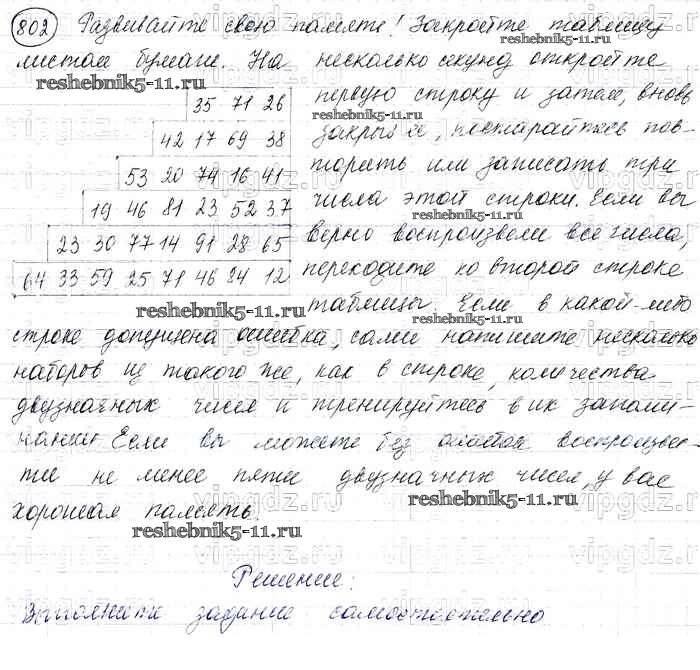 802 Развивайте свою память! Закройте таблицу
листом бумаги. На несколько секунд откройте
reshebnik5-11.ru
35 71 26 первую строку и затем, вновь
reshebnik5-11.ru
42 17 69 38 закрыв её, постарайтесь пов-
53 20 74 16 41 торить или записать три
reshebnik5-11.ru
19 46 81 23 52 37 числа этой строки. Если вы
reshebnik5-11.ru
23 30 77 14 91 28 65 верно воспроизвели все числа,
64 33 59 25 71 46 84 12 переходите ко второй строке
reshebnik5-11.ru
таблицы. Если в какой-либо
reshebnik5-11.ru
строке допущена ошибка, сами напишите несколько
наборов из такого же, как в строке, количества
двузначных чисел и тренируйтесь в их запоми-
нании. Если вы можете без ошибок воспроизвес-
ти не менее пяти двузначных чисел, у вас
reshebnik5-11.ru
хорошая память.
reshebnik5-11.ru
Решение:
Выполните задание самостоятельно